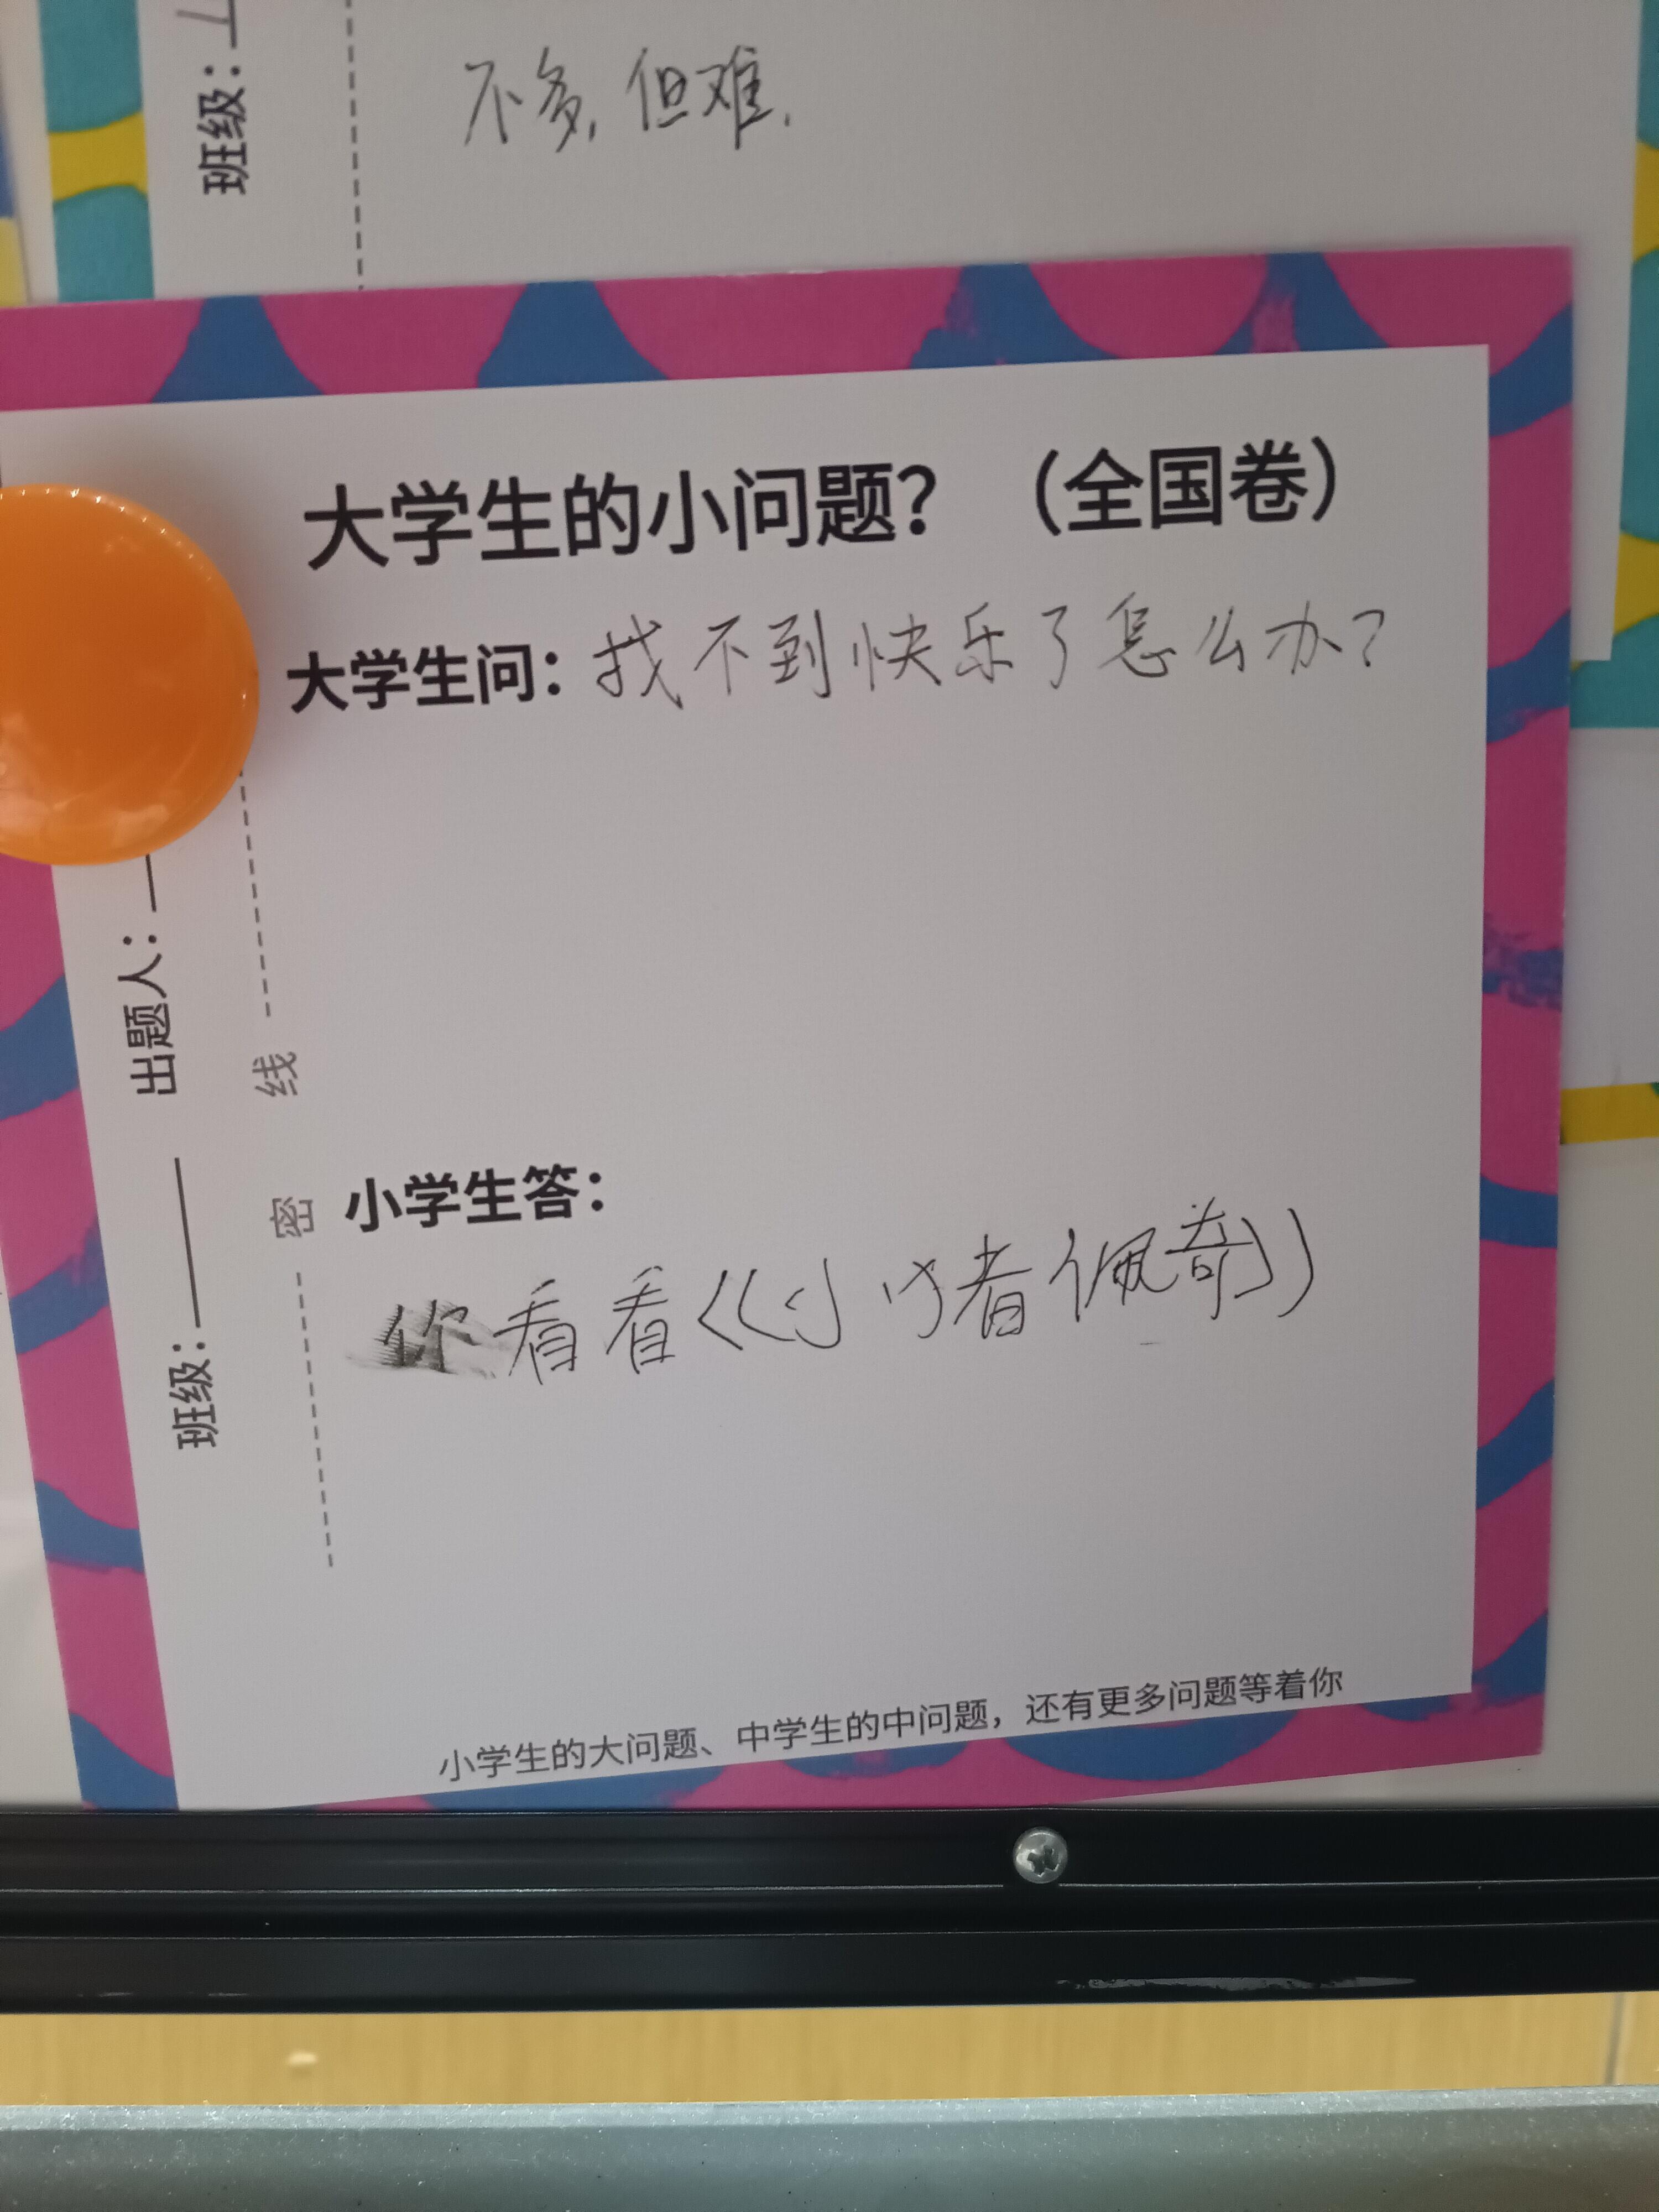 班级：
不多，但难.
大学生的小问题？（全国卷）
大学生问：找不到快乐了怎么办？
出题人：
线
密
班级：
小学生答：
你看看《小猪佩奇》
小学生的大问题、中学生的中问题，还有更多问题等着你